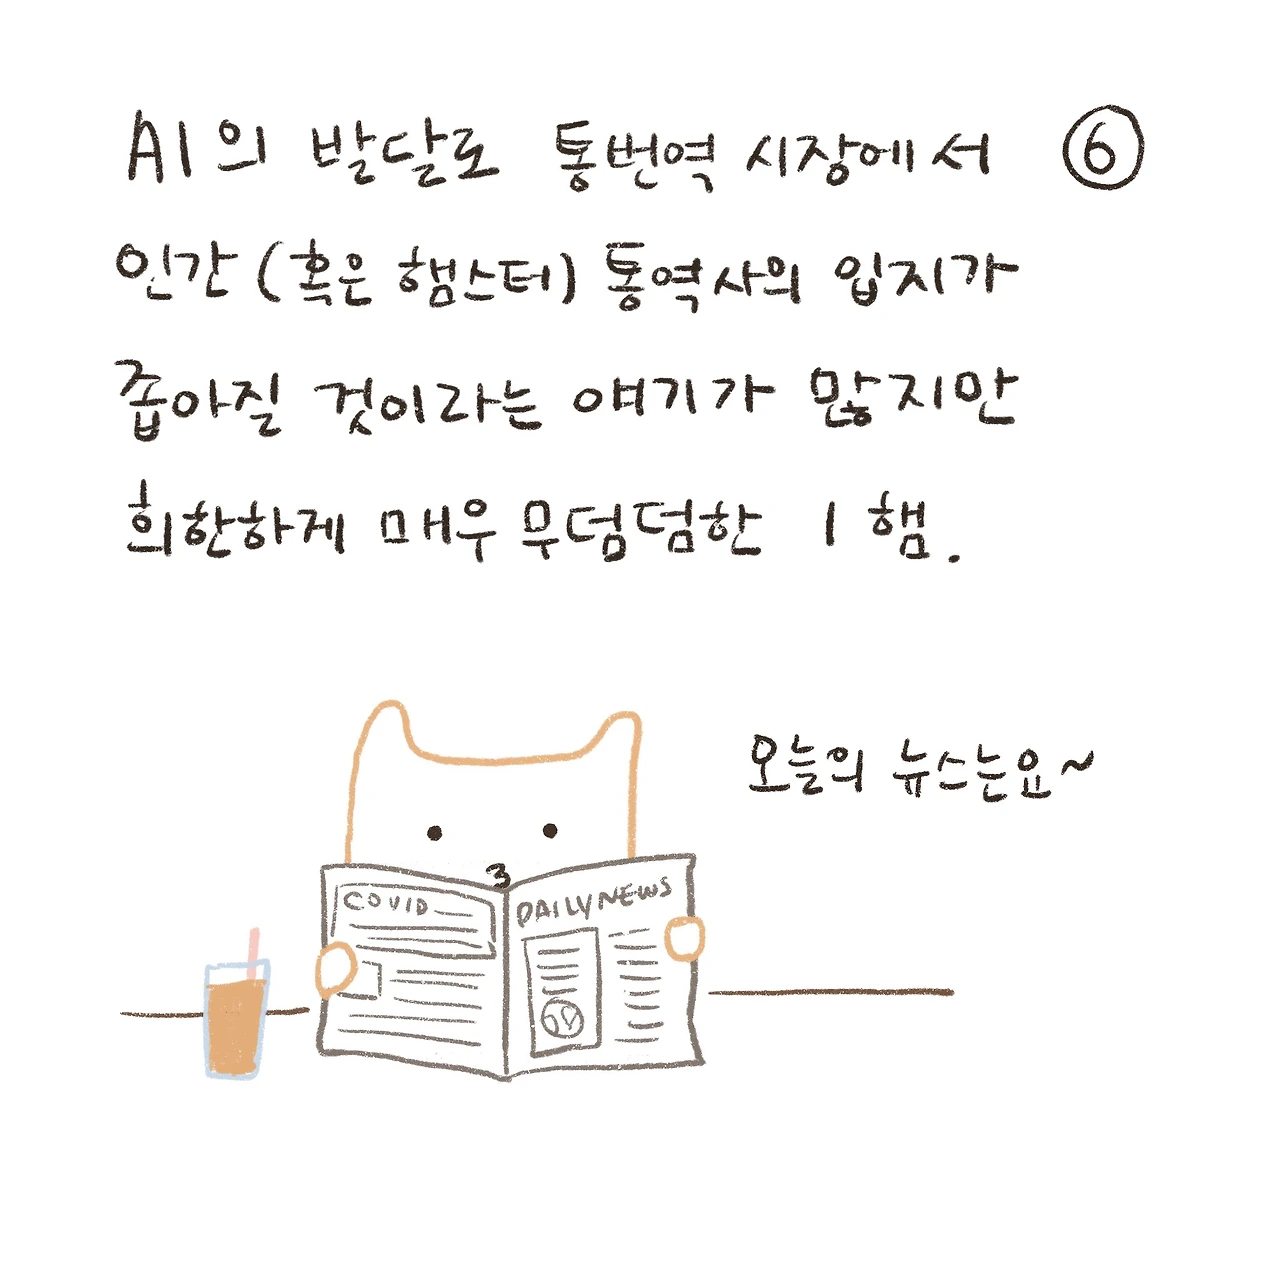 AI의 발달로 통번역 시장에서 ⑥
인간 (혹은 햄스터) 통역사의 입지가
좁아질 것이라는 얘기가 많지만
희한하게 매우 무덤덤한 1 햄.
오늘의 뉴스는요~
COVID
DAILY NEWS